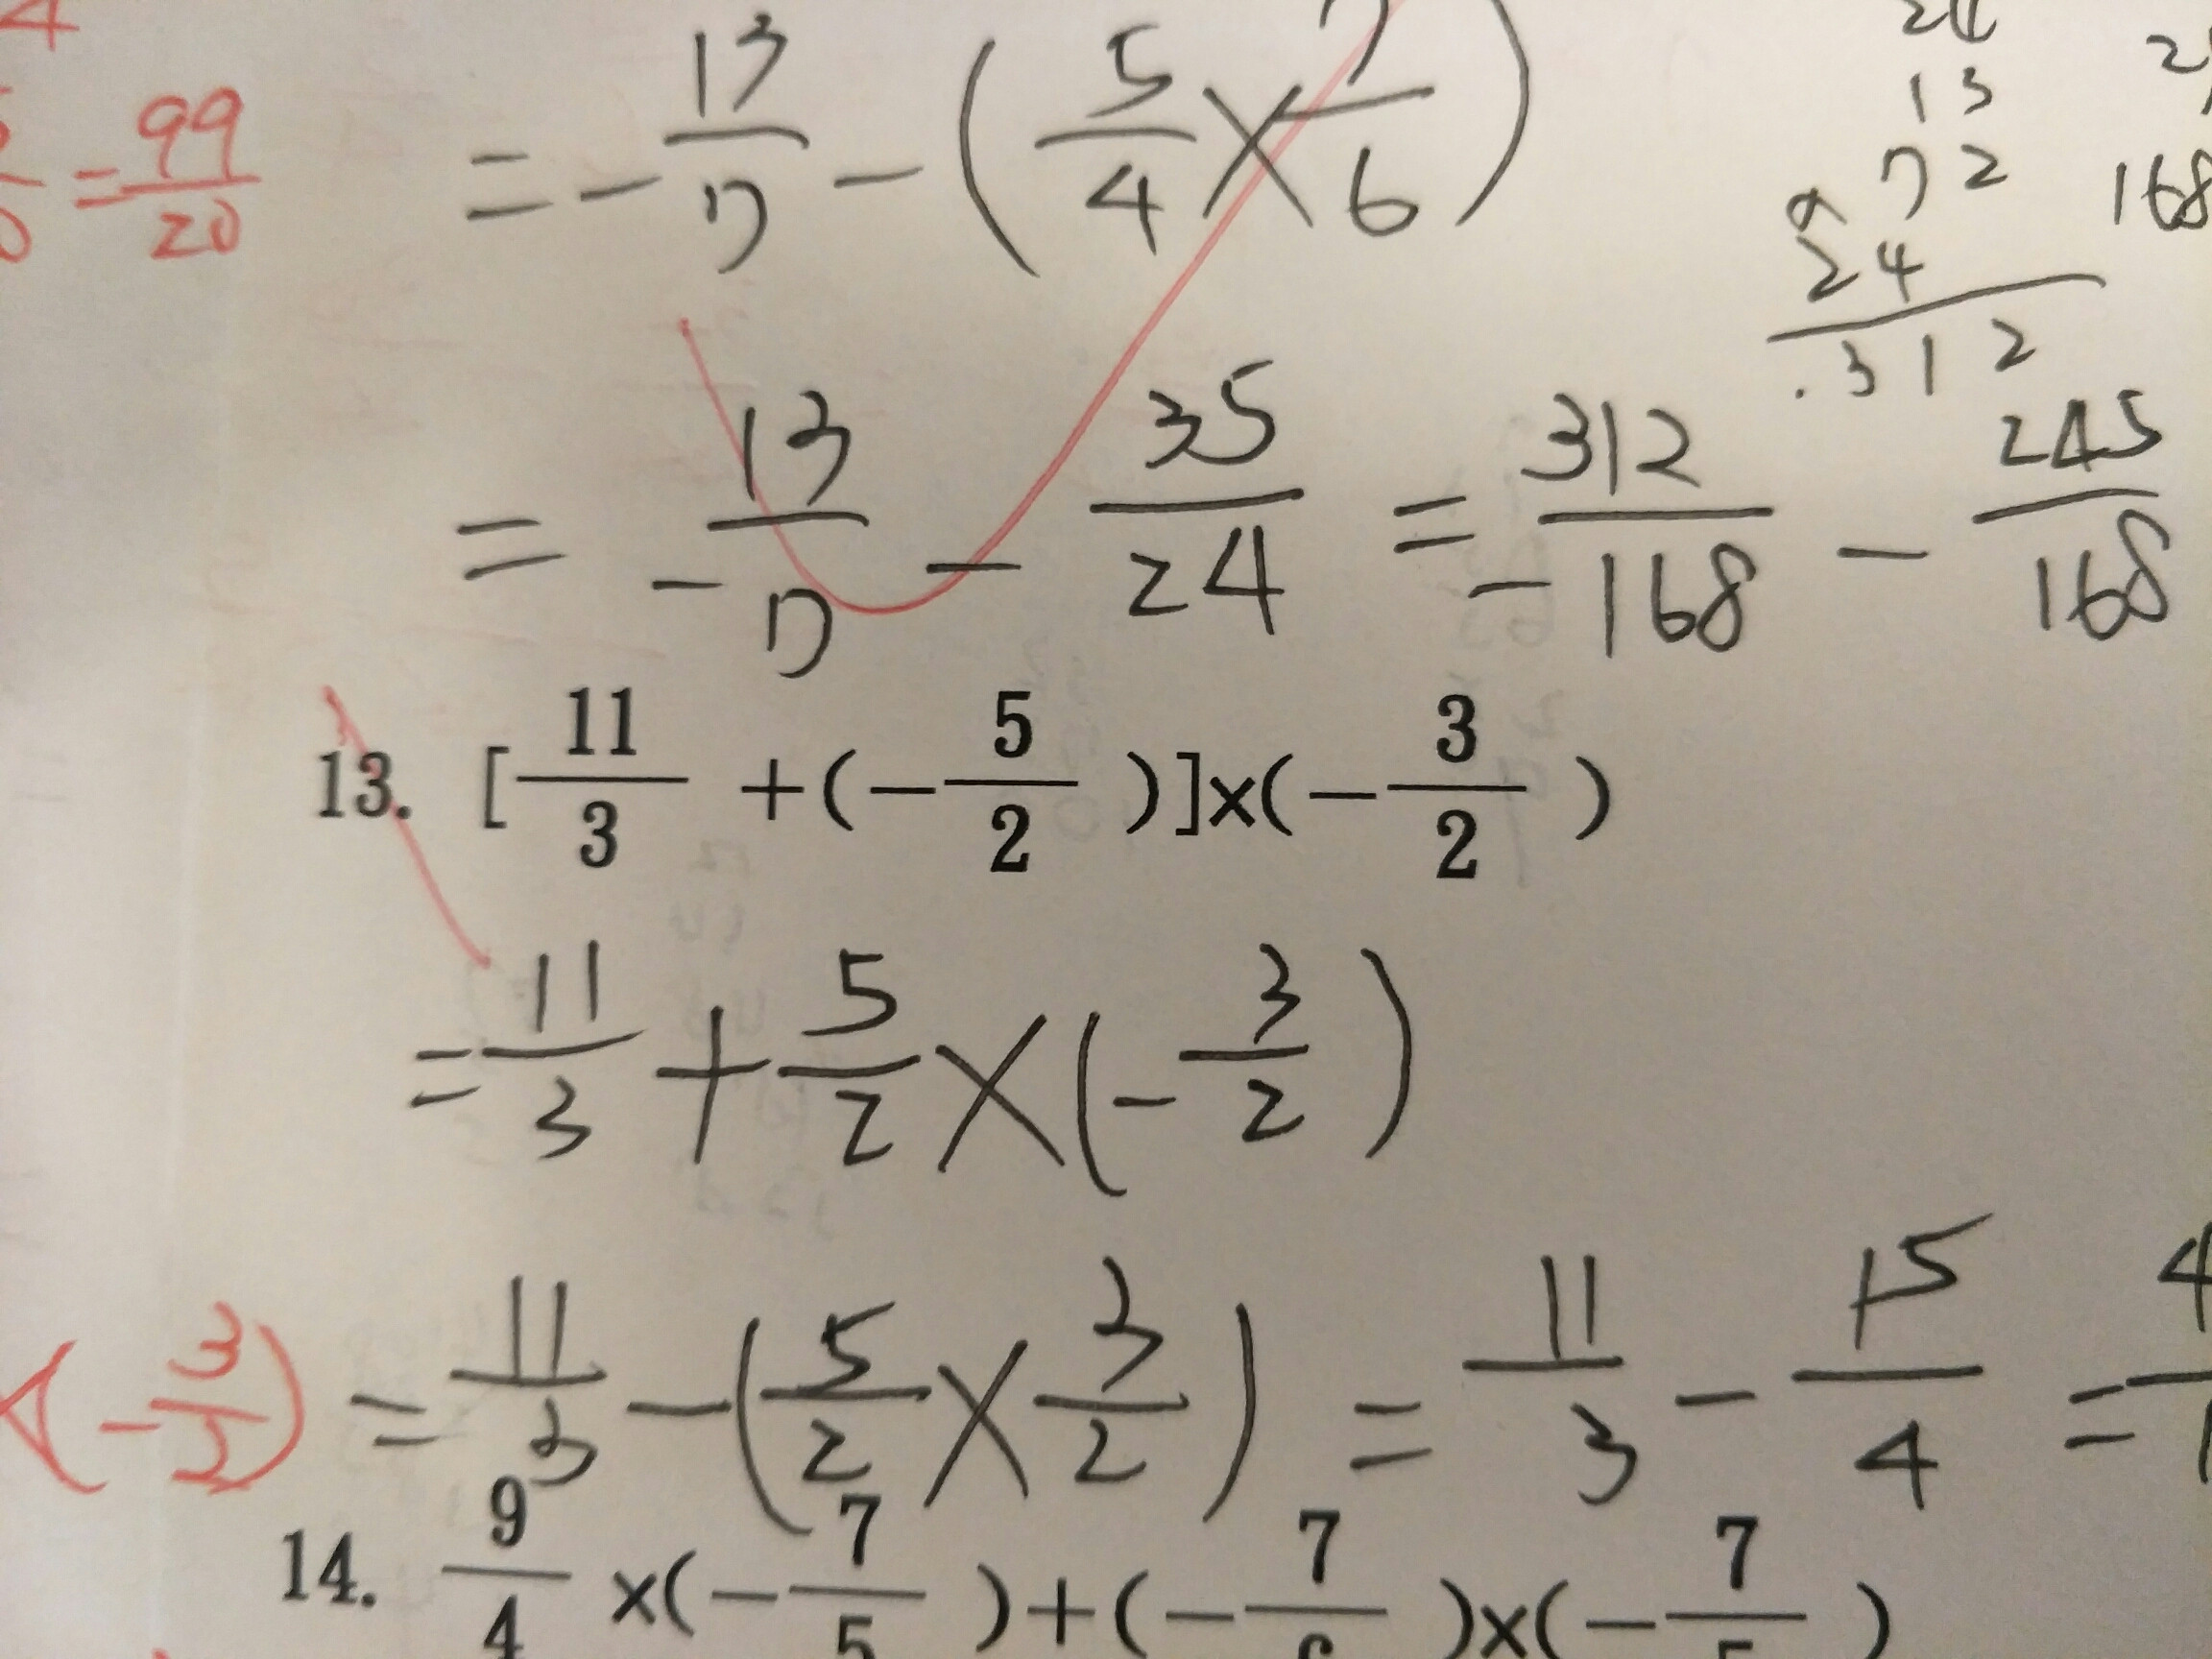 = 99/20
= - 13/7 - ( 5/4 × 7/6 )
24
13
72
24
312
168
= - 13/7 - 35/24 = - 312/168 - 245/168
13. [ 11/3 +(- 5/2 )]×(- 3/2 )
= 11/3 + 5/2 × (- 3/2 )
(- 3/2 )
= 11/3 - ( 5/2 × 3/2 ) = 11/3 - 15/4 =
14. 9/4 ×(- 7/5 )+(- 7/6 )×(- 7/5 )